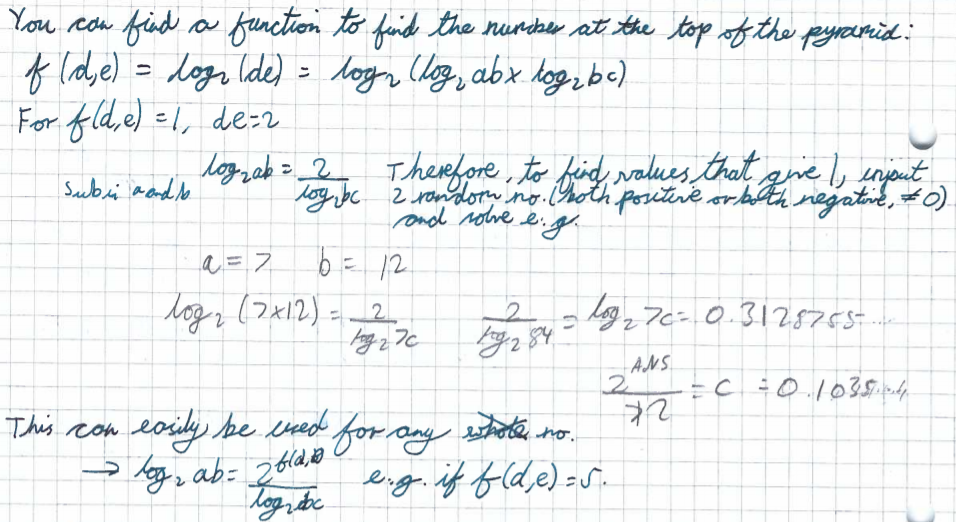 You can find a function to find the number at the top of the pyramid:
f(d,e) = log₂(de) = log₂(log₂ab × log₂bc)
For f(d,e) = 1, de=2
log₂ab = 2/log₂bc Therefore, to find values that give 1, input
Sub in a and b 2 random no. (both positive or both negative, ≠0)
and solve e.g.
a = 7 b = 12
log₂(7×12) = 2/log₂7c 2/log₂84 = log₂7c = 0.3128755...
2^ANS/12 = c = 0.1035...
This can easily be used for any no.
→ log₂ab = 2^f(d,e)/log₂bc e.g. if f(d,e) = 5.